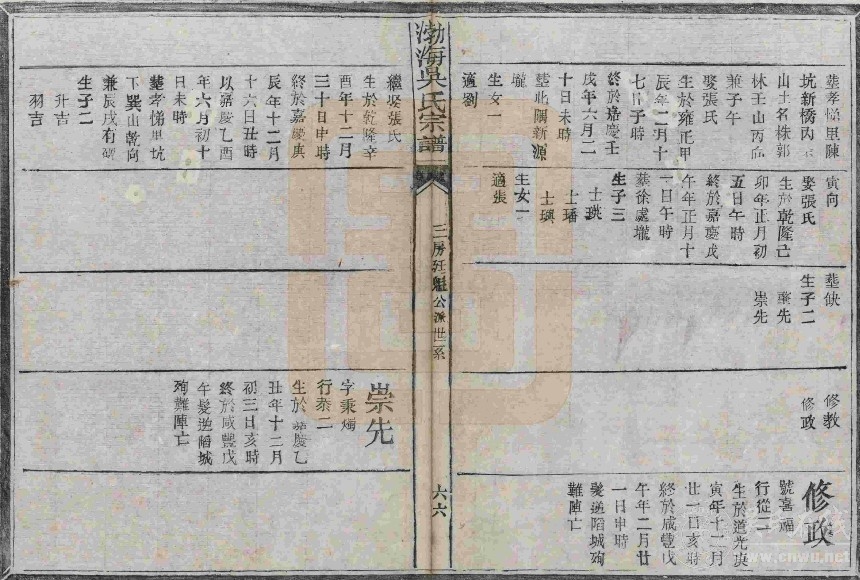 塟孝悌里陳
坑新橋內
山土名株郭
林壬山丙向
兼子午
娶張氏
生於雍正甲
辰年二月十
七日子時
終於嘉慶壬
戌年六月二
十日未時
塟此關新源
壠
生女一
適劉
寅向
娶張氏
生於乾隆亡
卯年正月初
五日午時
終於嘉慶戊
午年正月十
一日午時
塟徐處壠
生子三
士珙
士璠
士璵
生女一
適張
塟缺
生子二
秉先
崇先
修敎
修政
修政
號喜福
行從二
生於道光庚
寅年十二月
廿一日亥時
終於咸豐戊
午年二月廿
一日申時
髮逆陷城殉
難陣亡
渤海吳氏宗譜
三房廷魁公派世系
六六
繼娶張氏
生於乾隆辛
酉年十二月
三十日申時
終於嘉慶庚
辰年十二月
十六日丑時
以嘉慶乙酉
年六月初十
日未時
塟孝悌里坑
下巽山乾向
兼辰戌有碑
生子二
升吉
羽吉
崇先
字秉燭
行泰二
生於嘉慶乙
丑年十二月
初三日亥時
終於咸豐戊
午髮逆陷城
殉難陣亡
www.cnwu.net